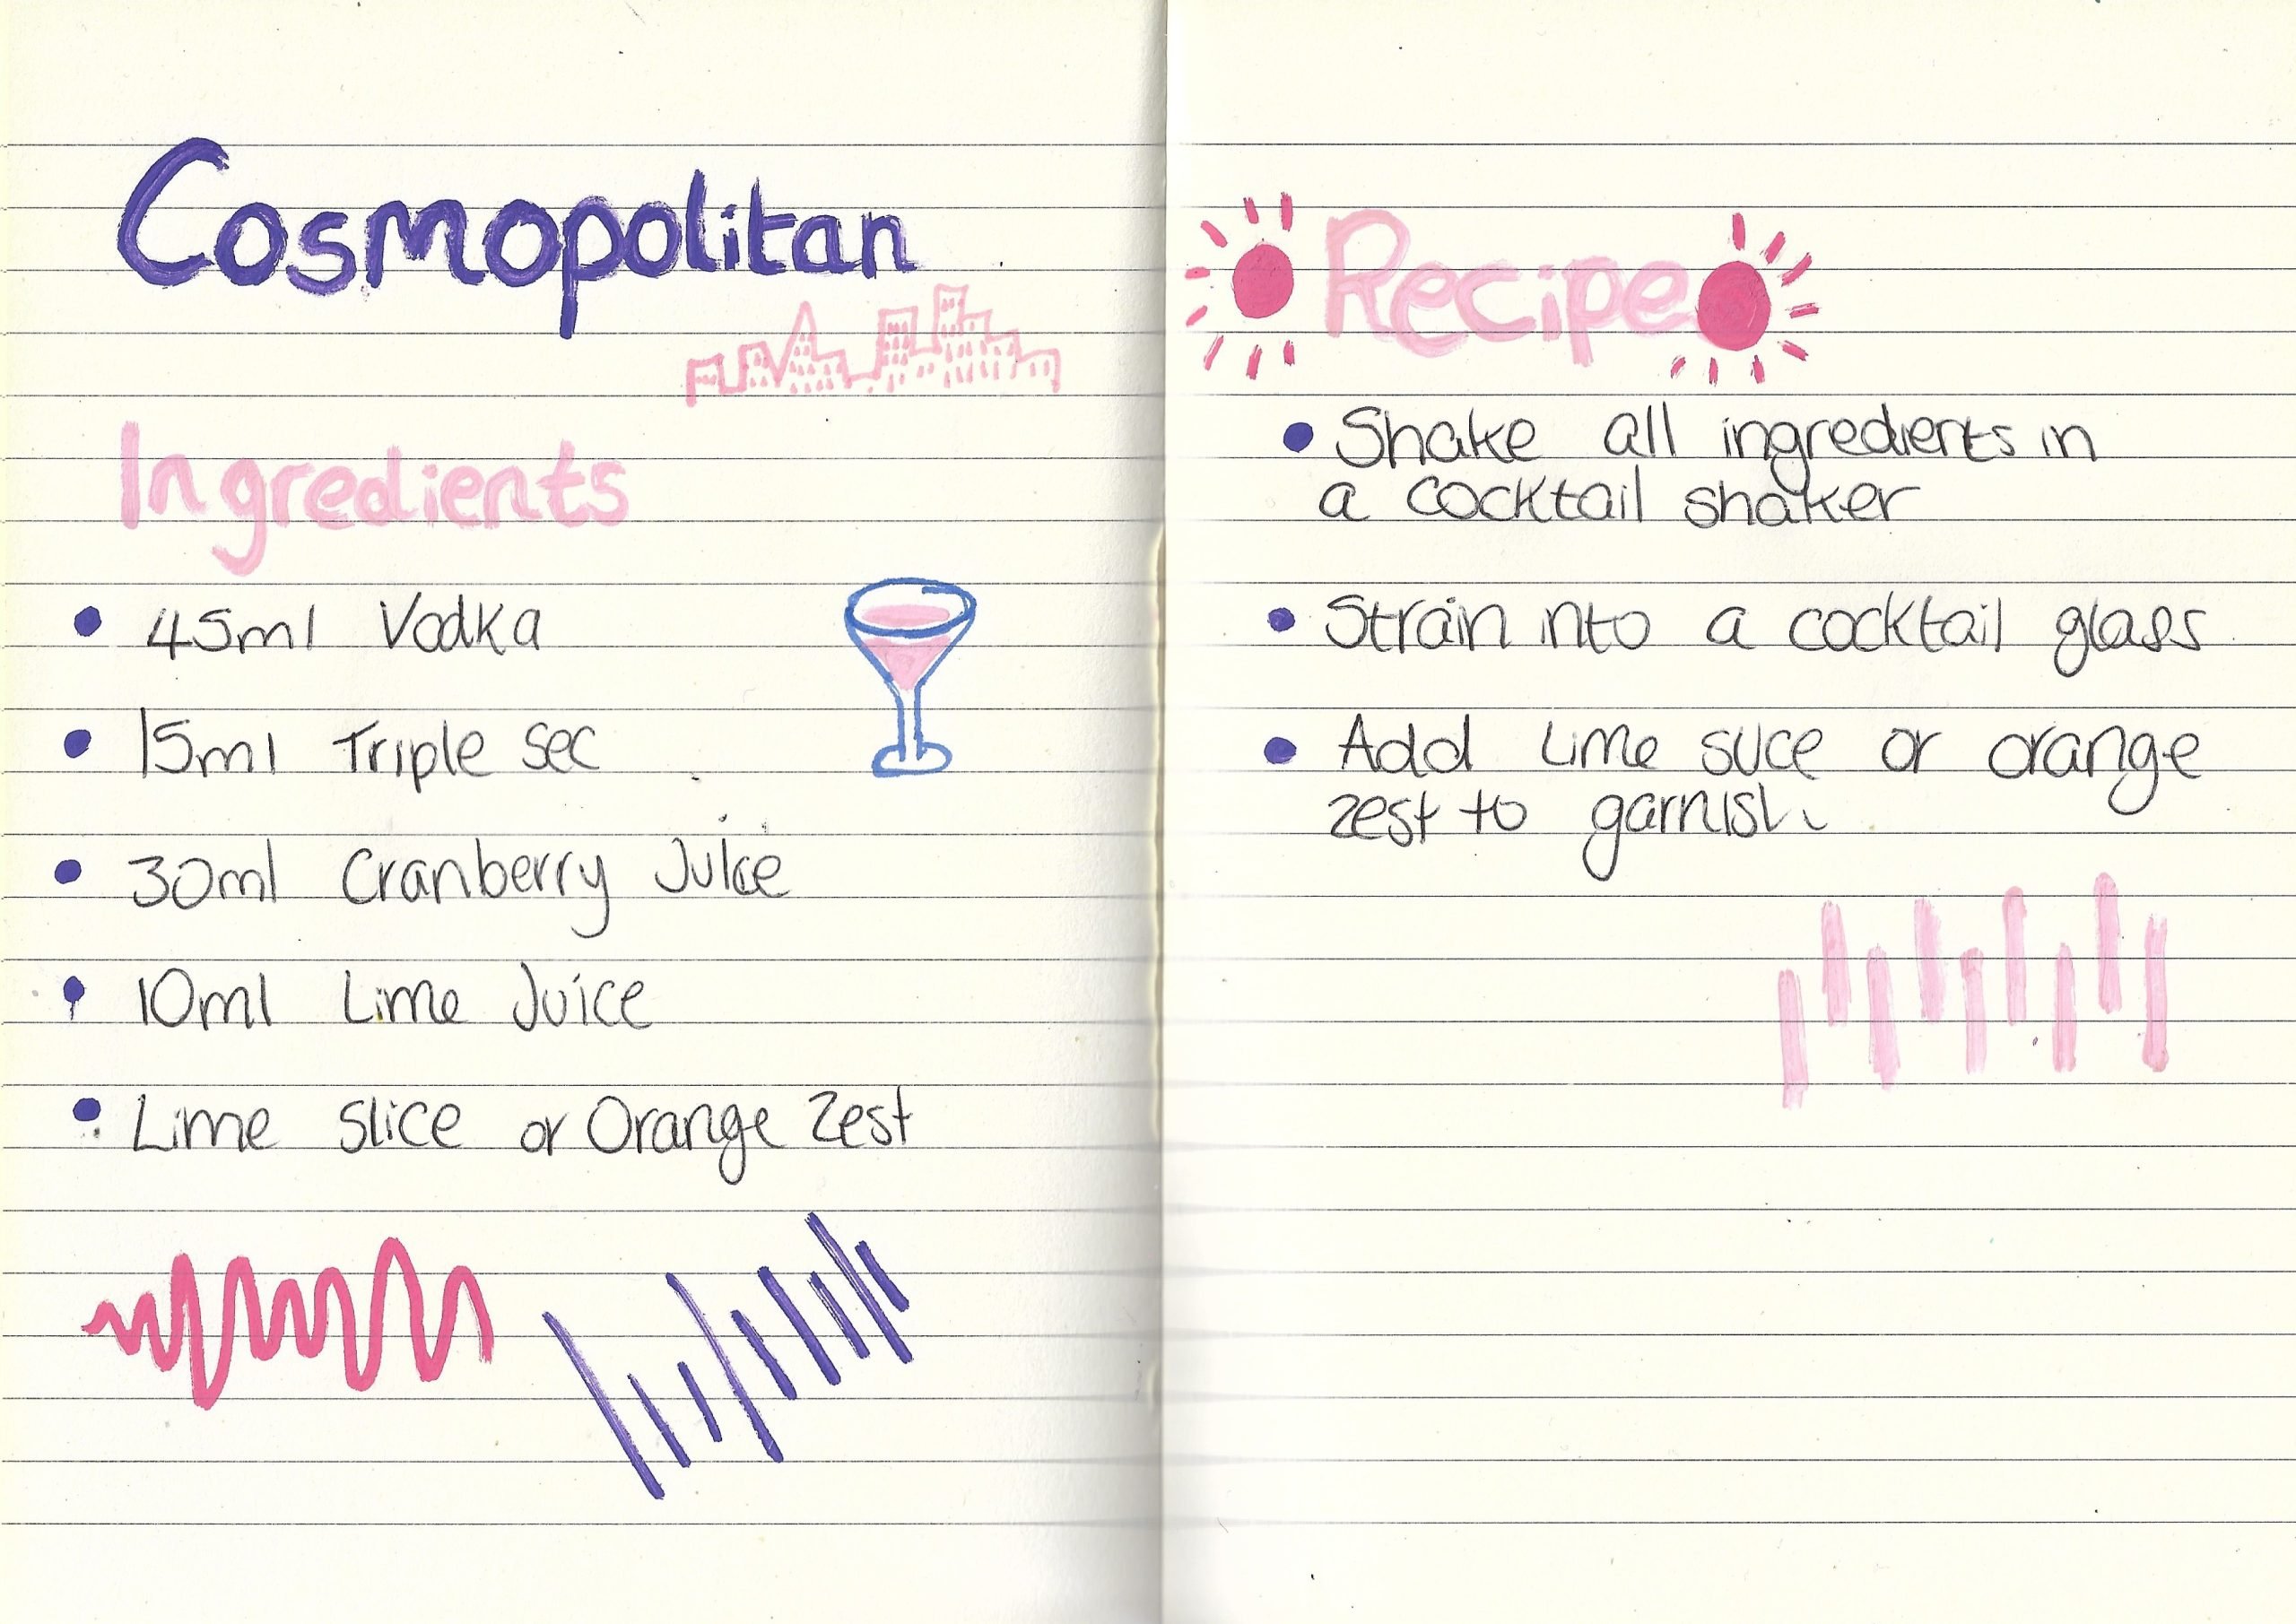 Cosmopolitan
Ingredients
• 45ml Vodka
• 15ml Triple Sec
• 30ml Cranberry Juice
• 10ml Lime Juice
• Lime Slice or Orange Zest
Recipe
• Shake all ingredients in
a cocktail shaker
• Strain into a cocktail glass
• Add Lime slice or orange
zest to garnish.